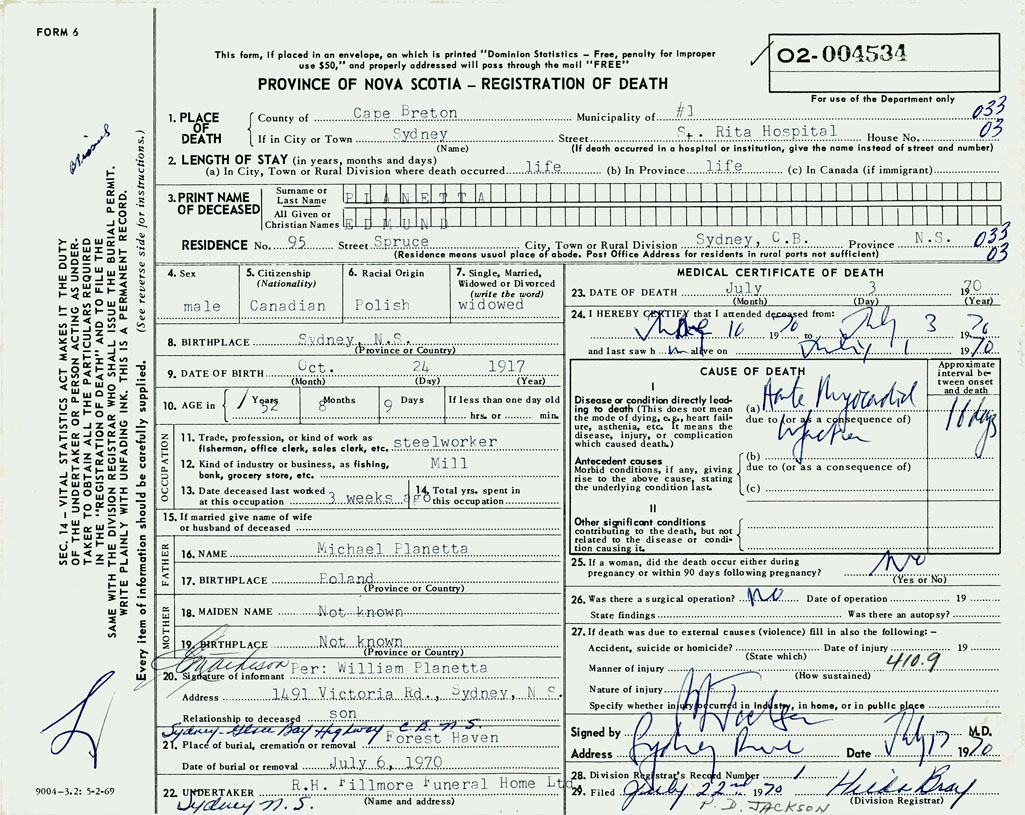 FORM 6
This form, if placed in an envelope, on which is printed "Dominion Statistics – Free, penalty for improper
use $50," and properly addressed will pass through the mail "FREE"
PROVINCE OF NOVA SCOTIA – REGISTRATION OF DEATH
02-004534
For use of the Department only
1. PLACE OF DEATH
County of Cape Breton Municipality of #1 033
If in City or Town Sydney Street St. Rita Hospital House No. 03
(Name) (If death occurred in a hospital or institution, give the name instead of street and number)
2. LENGTH OF STAY (in years, months and days)
(a) In City, Town or Rural Division where death occurred life (b) In Province life (c) In Canada (if immigrant)
3. PRINT NAME OF DECEASED
Surname or Last Name PLANETTA
All Given or Christian Names EDMUND
RESIDENCE No. 95 Street Spruce City, Town or Rural Division Sydney, C.B. Province N.S. 033
(Residence means usual place of abode. Post Office Address for residents in rural parts not sufficient) 03
4. Sex
male
5. Citizenship (Nationality)
Canadian
6. Racial Origin
Polish
7. Single, Married, Widowed or Divorced (write the word)
widowed
8. BIRTHPLACE Sydney, N.S.
(Province or Country)
9. DATE OF BIRTH Oct. 24 1917
(Month) (Day) (Year)
10. AGE in 52 Years 8 Months 9 Days If less than one day old
hrs. or min.
OCCUPATION
11. Trade, profession, or kind of work as
fisherman, office clerk, sales clerk, etc. steelworker
12. Kind of industry or business, as fishing,
bank, grocery store, etc. Mill
13. Date deceased last worked
at this occupation 3 weeks ago
14. Total yrs. spent in
this occupation
15. If married give name of wife
or husband of deceased
FATHER
16. NAME Michael Planetta
17. BIRTHPLACE Poland
(Province or Country)
MOTHER
18. MAIDEN NAME Not known
19. BIRTHPLACE Not known
(Province or Country)
20. Signature of informant Per: William Planetta
Address 1491 Victoria Rd., Sydney, N S.
Relationship to deceased son
Sydney-Glace Bay Highway C.B. N.S.
21. Place of burial, cremation or removal Forest Haven
Date of burial or removal July 6, 1970
22. UNDERTAKER R.H. Fillmore Funeral Home Ltd
Sydney N.S. (Name and address)
MEDICAL CERTIFICATE OF DEATH
23. DATE OF DEATH July 3 1970
(Month) (Day) (Year)
24. I HEREBY CERTIFY that I attended deceased from:
16 1970 to July 3 1970
and last saw him alive on July 1 1970
CAUSE OF DEATH
Approximate interval between onset and death
I
Disease or condition directly leading to death (This does not mean the mode of dying, e.g., heart failure, asthenia, etc. It means the disease, injury, or complication which caused death.)
(a) Acute Myocardial 16 days
due to (or as a consequence of)
Infarction
Antecedent causes
Morbid conditions, if any, giving rise to the above cause, stating the underlying condition last.
(b)
due to (or as a consequence of)
(c)
II
Other significant conditions
contributing to the death, but not related to the disease or condition causing it.
25. If a woman, did the death occur either during
pregnancy or within 90 days following pregnancy? No
(Yes or No)
26. Was there a surgical operation? No Date of operation 19
State findings Was there an autopsy?
27. If death was due to external causes (violence) fill in also the following: –
Accident, suicide or homicide? Date of injury 19
(State which) 410.9
Manner of injury
(How sustained)
Nature of injury
Specify whether injury occurred in industry, in home, or in public place
Signed by M.D.
Address Sydney River Date July 17 1970
28. Division Registrar's Record Number 1
29. Filed July 22nd 1970 Hilda Bray
P. D. JACKSON (Division Registrar)
SEC. 14 – VITAL STATISTICS ACT MAKES IT THE DUTY
OF THE UNDERTAKER OR PERSON ACTING AS UNDER-
TAKER TO OBTAIN ALL THE PARTICULARS REQUIRED
IN THE "REGISTRATION OF DEATH" AND TO FILE THE
SAME WITH THE DIVISION REGISTRAR WHO SHALL ISSUE THE BURIAL PERMIT.
WRITE PLAINLY WITH UNFADING INK. THIS IS A PERMANENT RECORD.
Every item of information should be carefully supplied. (See reverse side for instructions.)
9004-3.2: 5-2-69